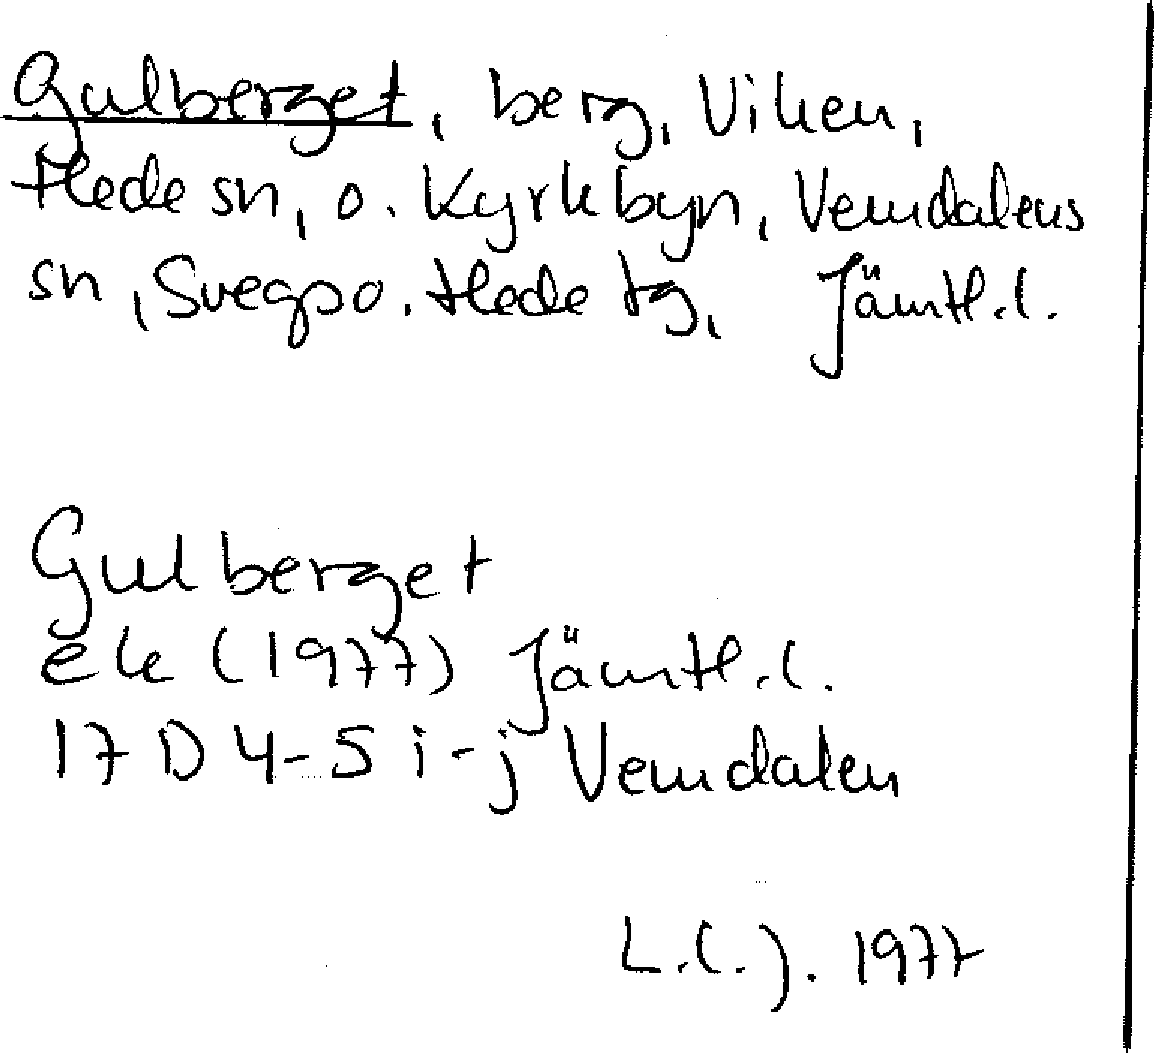 Gulberget, berg, Viken,
Hede sn, o. Kyrkbyn, Vemdalens
sn, Svegs o. Hede tg, Jämtl.l.
Gulberget
ek (1977) Jämtl.l.
17 D 4-5 i-j Vemdalen
1977